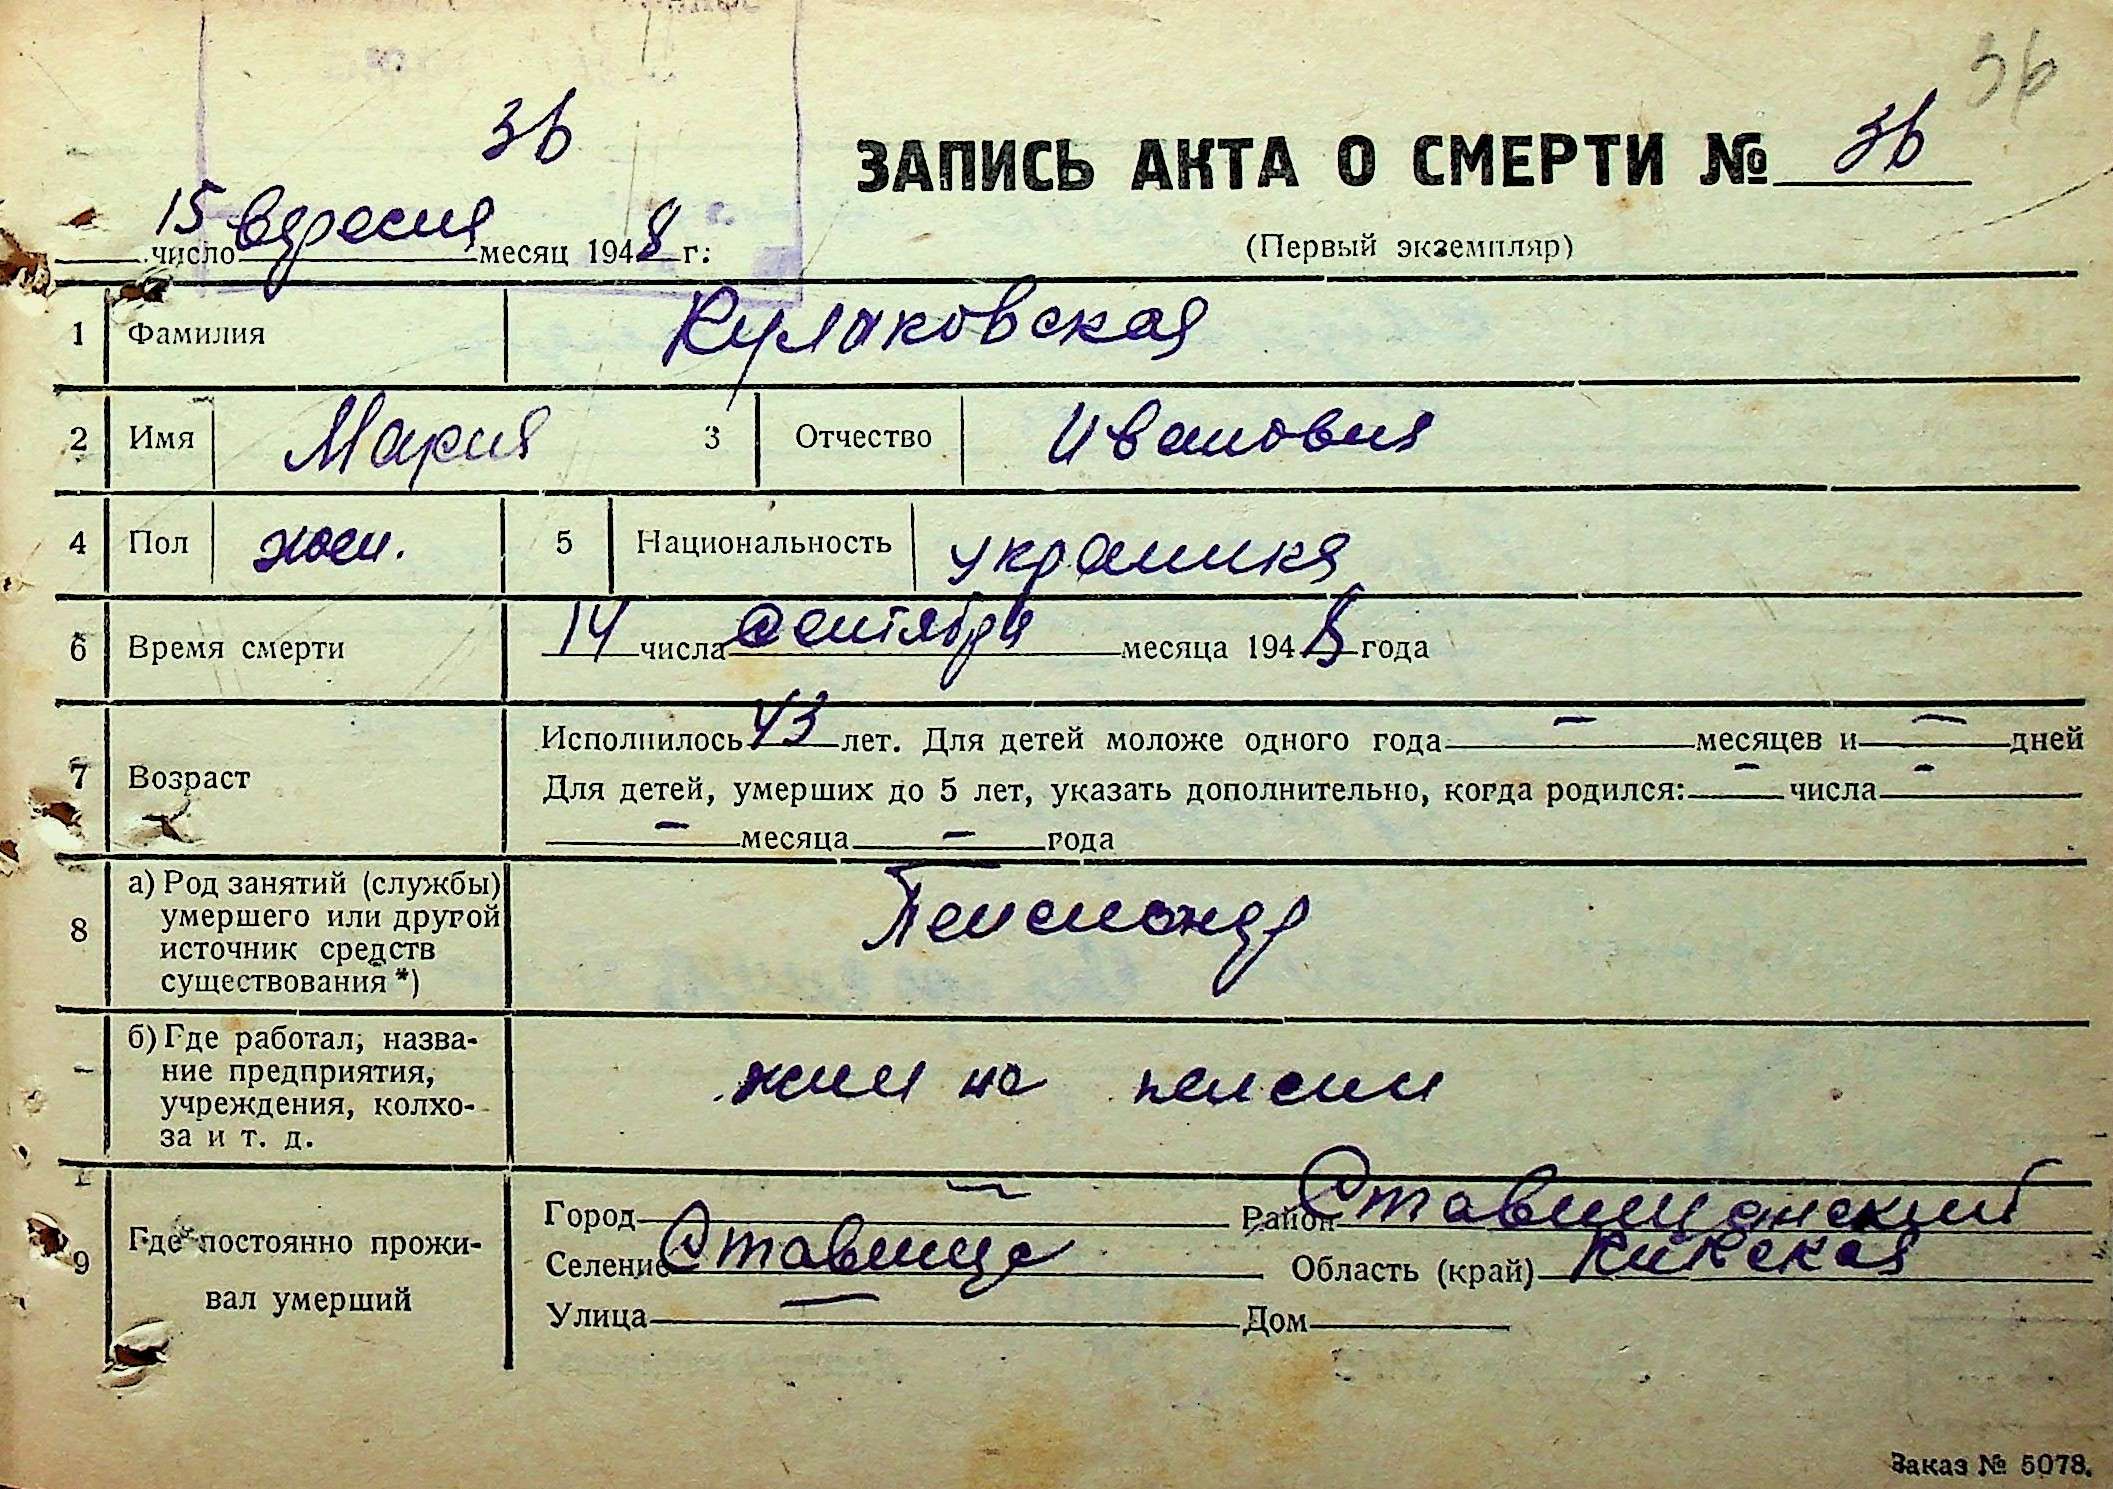 36
36
ЗАПИСЬ АКТА О СМЕРТИ № 36
15 число вересня месяц 1948 г.
(Первый экземпляр)
1 Фамилия Кулаковская
2 Имя Мария 3 Отчество Ивановна
4 Пол жен. 5 Национальность украинка
6 Время смерти 14 числа сентября месяца 1948 года
7 Возраст Исполнилось 43 лет. Для детей моложе одного года — месяцев и — дней
Для детей, умерших до 5 лет, указать дополнительно, когда родился: — числа —
— месяца — года
8 а) Род занятий (службы)
умершего или другой
источник средств
существования *)
б) Где работал, назва-
ние предприятия,
учреждения, колхо-
за и т. д.
на пенсии
9 Где постоянно прожи-
вал умерший
Город — Район Ставищанский
Селение Ставище Область (край) Киевская
Улица — Дом
Заказ № 5078.